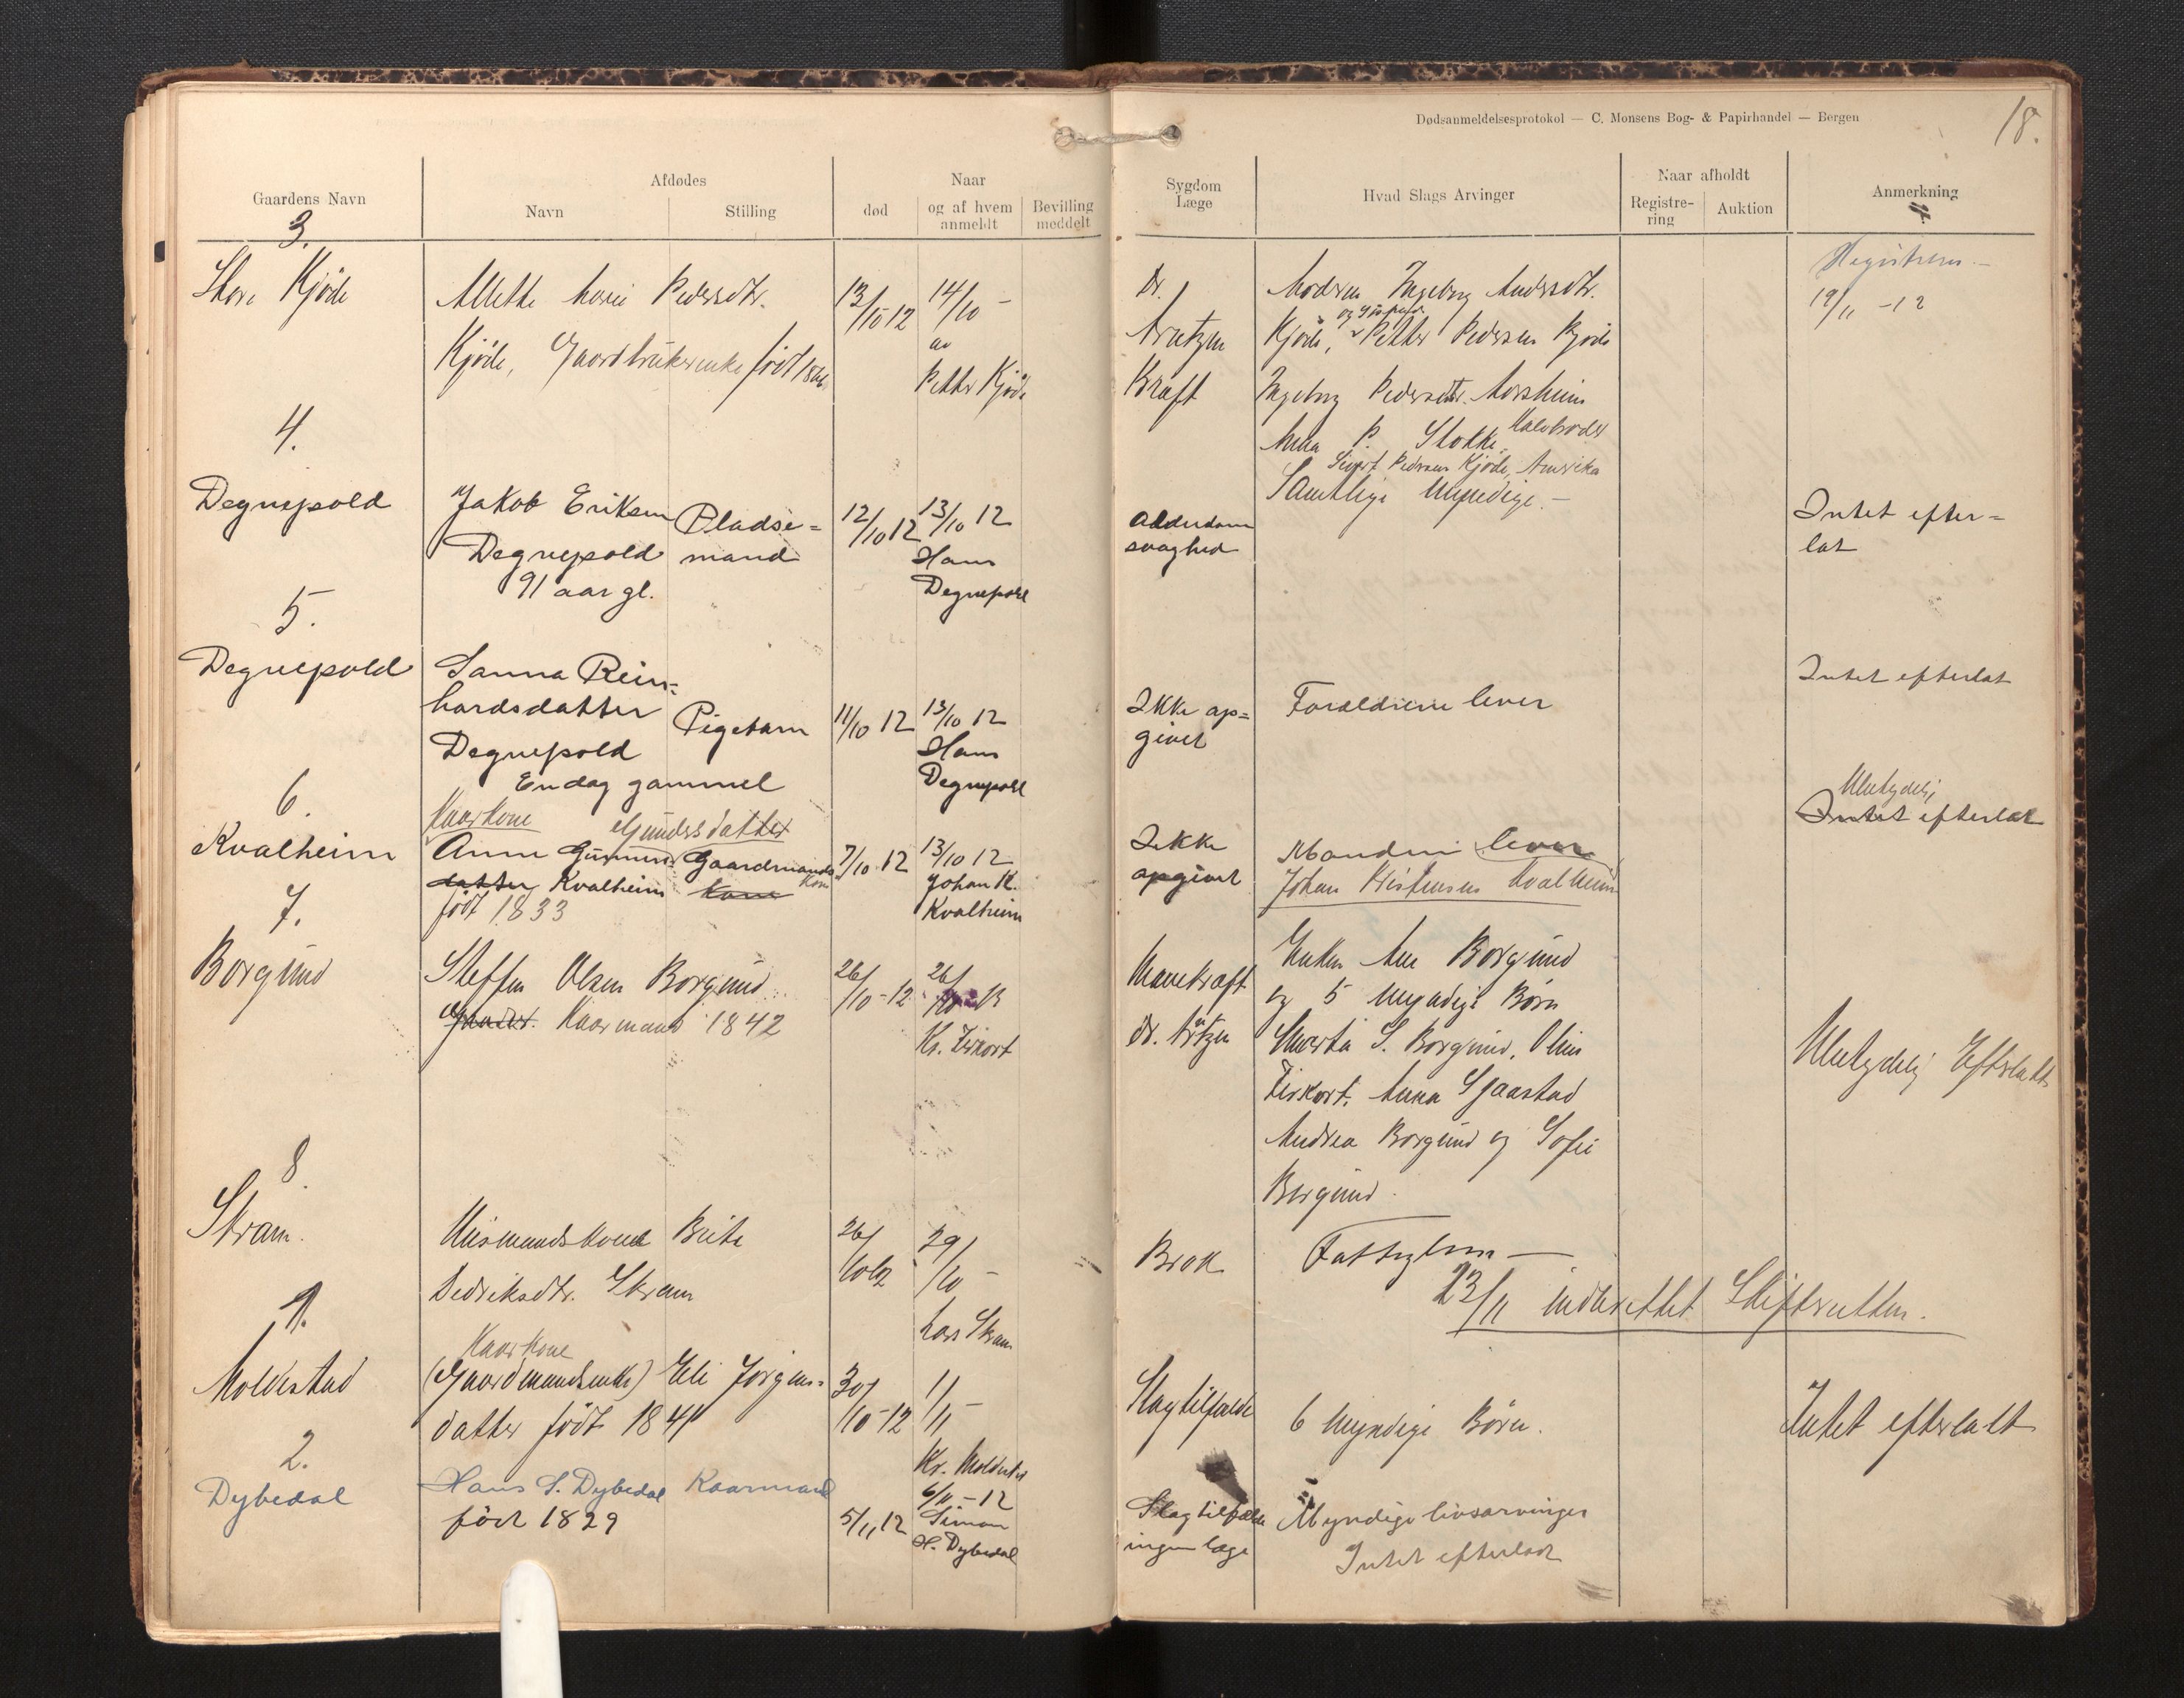 Dødsanmeldelsesprotokol — C. Monsens Bog- & Papirhandel — Bergen
18.
Gaardens Navn
Afdødes
Navn
Stilling
Naar
død
og af hvem anmeldt
Bevilling meddelt
Sygdom Læge
Hvad Slags Arvinger
Naar afholdt
Registre-ring
Auktion
Anmerkning
3.
Store Kjöde
Allette Marie Pedersdtr.
Kjöde, Gaardbrukerenke født
13/10 12
14/10 -
av
Petter Kjöde
Dr.
Arntzen
Kraft
Modren Ingeborg Andersdtr.
Kjöde, Petter Pedersen Kjöde
og
Ingeborg Pedersdtr. Aarsheim
Anna P. Stokke Halvbroder
Sivert Pedersen Kjöde, Amerika
Samtlige Myndige. -
19/11 -12
4.
Degnepold
Jakob Eriksen
Degnepold
91 aar gl.
Pladse=
mand
12/10 12
13/10 12
Hans
Degnepold
Alderdom
svaghed
Intet efter=
lat
5.
Degnepold
Sanna Rein=
hardsdatter
Degnepold
En dag gammel
Pigebarn
11/10 12
13/10 12
Hans
Degnepold
Ikke op=
givet
Forældrene lever
Intet efterlat
6.
Kvalheim
Kaarkone
Gundersdatter
Anne
datter Kvalheim
født 1833
Gaardmands
Kone
7/10 12
13/10 12
Johan K.
Kvalheim
Ikke
opgivet
Manden lever
Johan Kristensen Kvalheim
Ubetydelig
Intet efterlat
7.
Borgund
Steffen Olsen Borgund
Kaarmand 1842
26/10-12
26/
Kr. Zirkort
Mavekraft
Dr. Arntzen
Enken Ane Borgund
og 5 Myndige Børn
S. Borgund, Oline
Zirkort, Anna Sjaastad
Andrea Borgund og Sofie
Borgund.
Ubetydelig Efterladt
8.
Skram.
Husmandskone Brite
Didriksdtr. Skram
26/10 12
29/10 -
Lars Skram
Brok
Fattiglem —
23/11 indberettet Skifteretten.
1.
Moldestad
Kaarkone
(Gaardmandsenke) Eli Jörgens=
datter født 1841
30/10-12
1/11 -
Kr. Moldestad
Slagtilfælde
6 Myndige Børn.
Intet efterladt
2.
Dybedal
Hans S. Dybedal Kaarmand
født 1829
5/11 12
6/11 -12
Simon
H. Dybedal
Slagtilfælde
ingen læge
Myndige livsarvinger
Intet efterladt